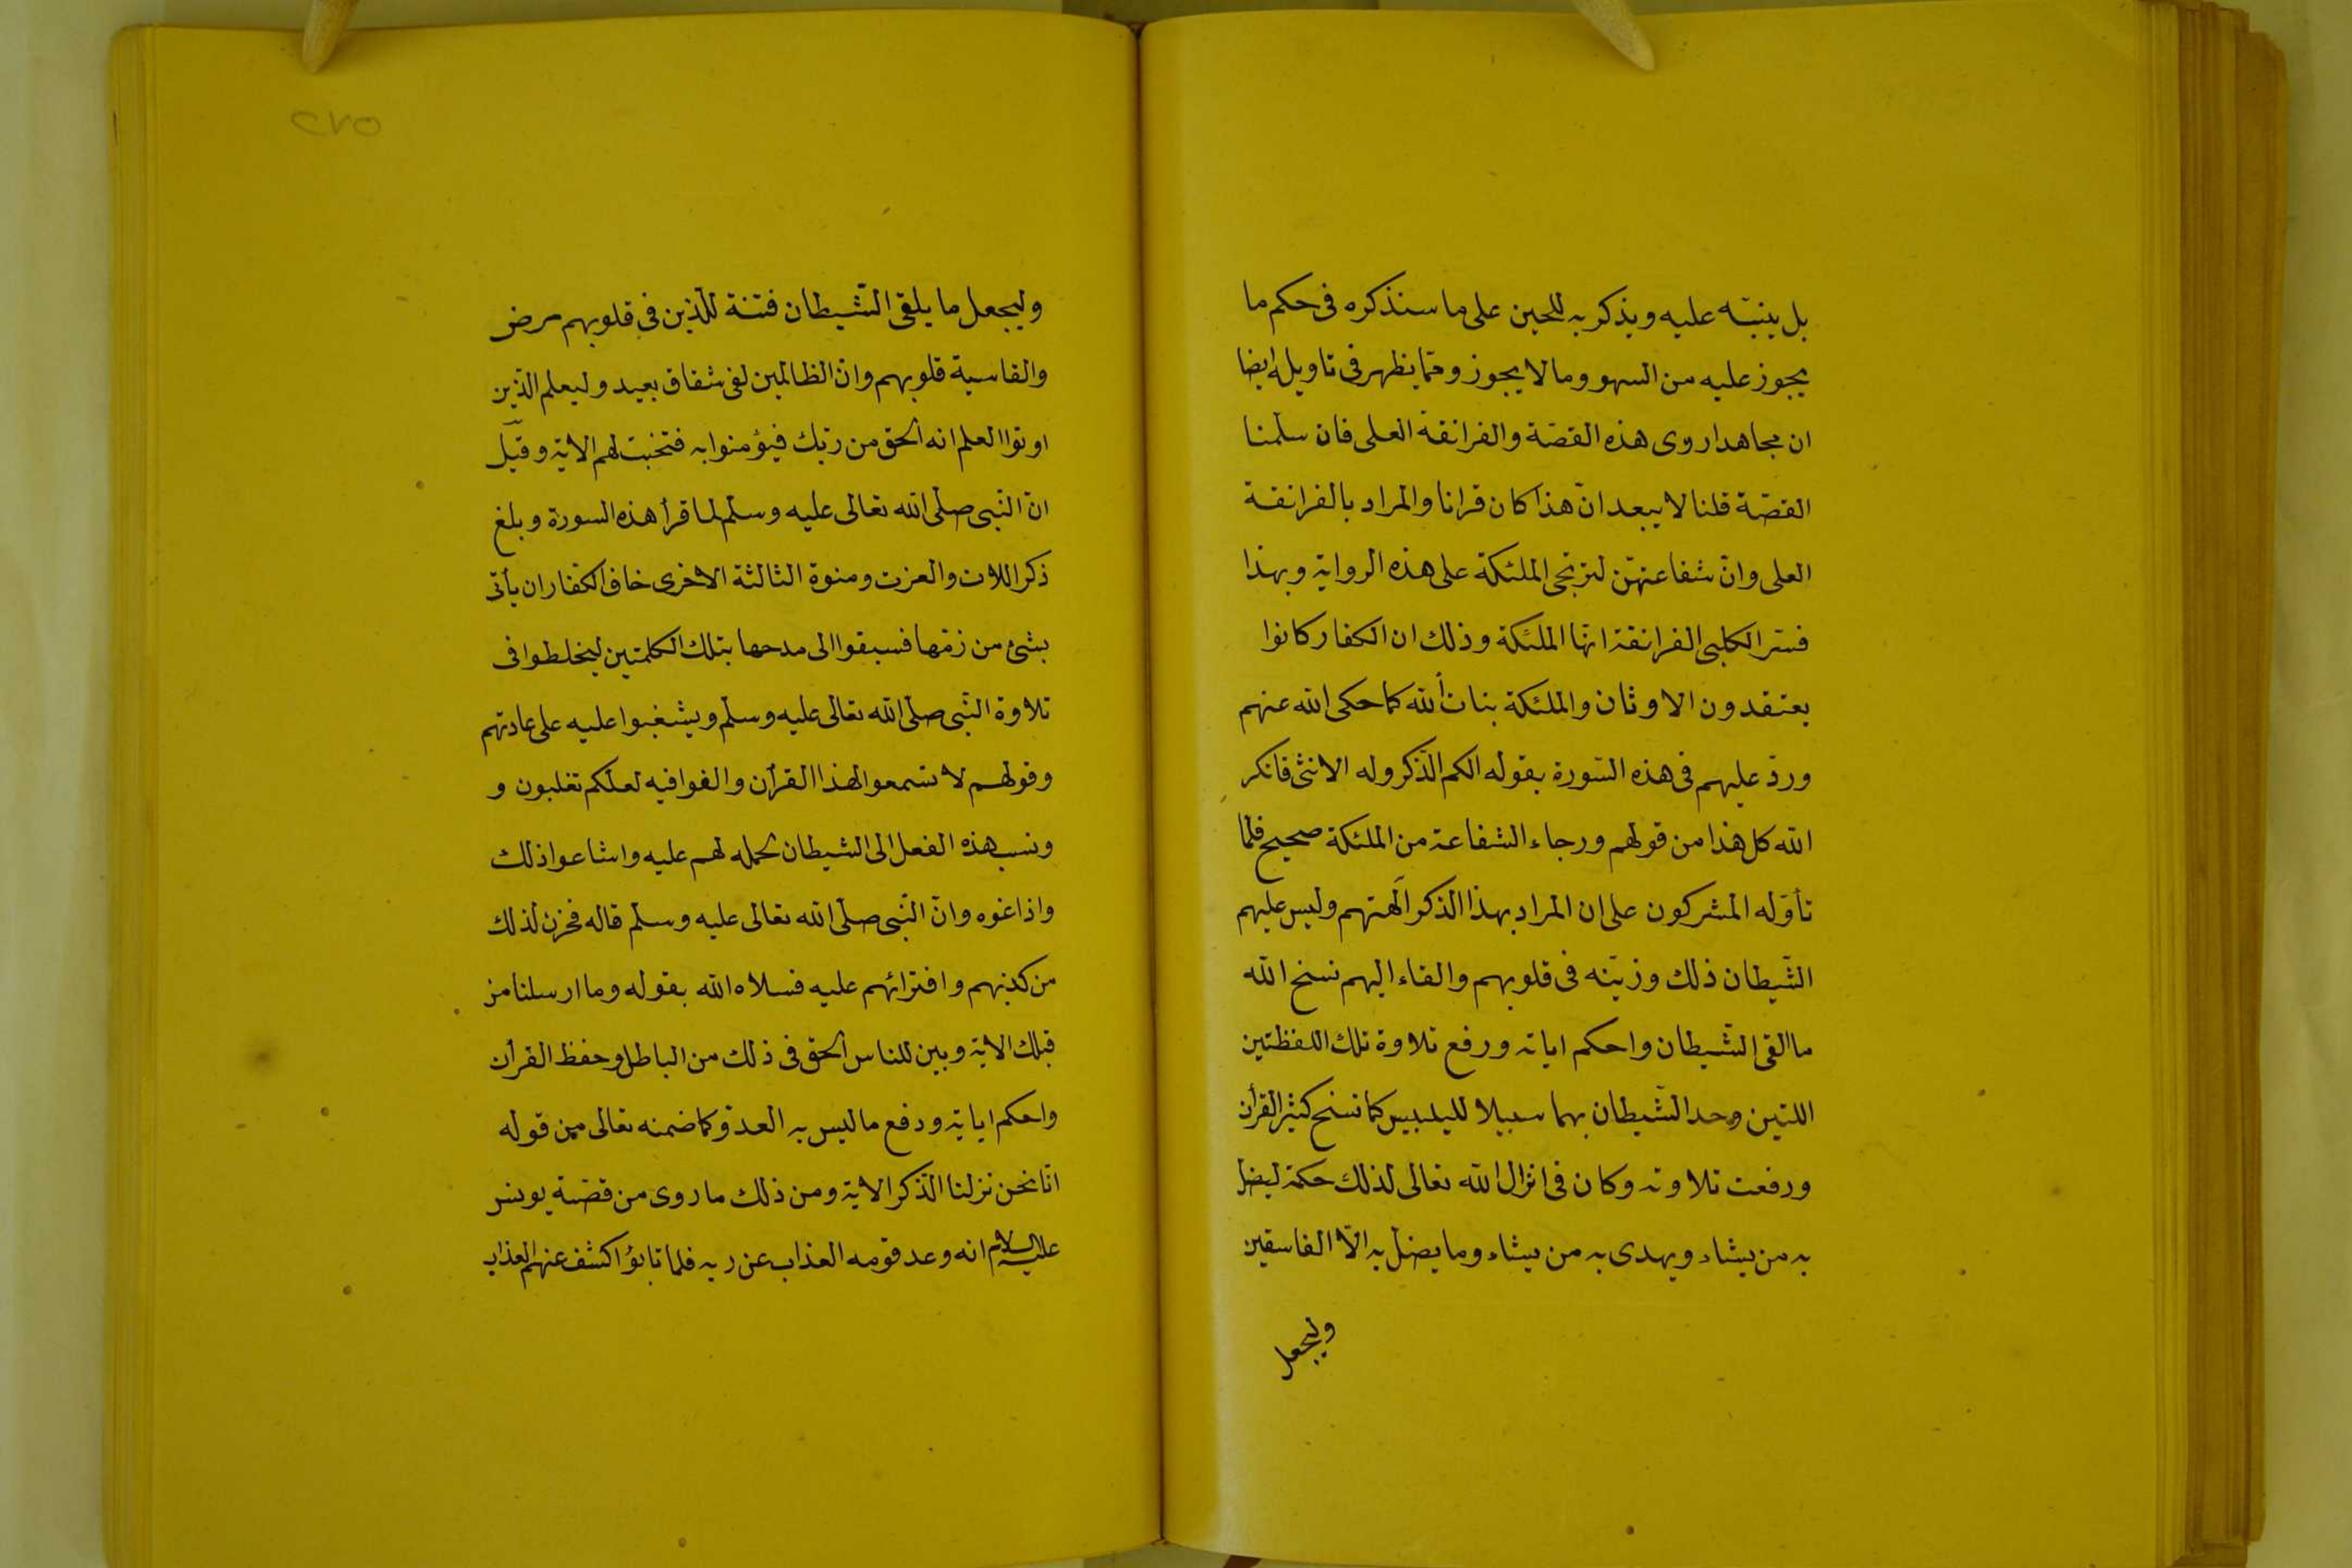 بل ينبّه عليه ويذكر به للحين على ما سنذكره فى حكم ما
يجوز عليه من السهو وما لا يجوز وممّا يظهر فى تاويله ايضا
ان مجاهدا روى هذه القصّة والغرانقة العلى فان سلّمنا
القصّة قلنا لا يبعد انّ هذا كان قرانا والمراد بالغرانقة
العلى وانّ شفاعتهنّ لترتجى الملئكة على هذه الرواية وبهذا
فسّر الكلبى الغرانقة انّها الملئكة وذلك ان الكفار كانوا
يعتقدون الاوثان والملئكة بنات الله كما حكى الله عنهم
وردّ عليهم فى هذه السّورة بقوله الكم الذّكر وله الانثى فانكر
الله كل هذا من قولهم ورجاء الشفاعة من الملئكة صحيح فلمّا
تأوّله المشركون على ان المراد بهذا الذكر الهتهم ولبس عليهم
الشّيطان ذلك وزيّنه فى قلوبهم والقاء اليهم نسخ الله
ما القى الشّيطان واحكم اياته ورفع تلاوة تلك اللفظتين
اللتين وحد الشّيطان بهما سبيلا لليلبيس كما نسخ كثير القرأن
ورفعت تلاوته وكان فى انزال الله تعالى لذلك حكمة ليضل
به من يشاء ويهدى به من يشاء وما يضل به الّا الفاسقين
وليجعل
٢٧٥
وليجعل ما يلقى الشّيطان فتنة للّذين فى قلوبهم مرض
والقاسية قلوبهم وانّ الظالمين لفى شقاق بعيد وليعلم الّذين
اوتوا العلم انه الحق من ربّك فيؤمنوا به فتخبت لهم الاية وقيل
انّ النّبى صلّى الله تعالى عليه وسلّم لما قرأ هذه السورة وبلغ
ذكر اللات والعزت ومنوة الثالثة الاخرى خاف الكفار ان يأتى
بشئ من زمّها فسبقوا الى مدحها بتلك الكلمتين ليخلطوا فى
تلاوة النّبى صلّى الله تعالى عليه وسلّم ويشغبوا عليه على عادتهم
وقولهم لا تسمعوا لهذا القرأن والغوا فيه لعلّكم تغلبون و
ونسب هذه الفعل الى الشيطان لحمله لهم عليه واشاعوا ذلك
واذاغوه وانّ النّبى صلّى الله تعالى عليه وسلّم قاله فحزن لذلك
من كذبهم وافترائهم عليه فسلاه الله بقوله وما ارسلنا من
قبلك الاية وبين للناس الحق فى ذلك من الباطل وحفظ القرأن
واحكم اياته ودفع ما ليس به العدوّ كما ضمنه تعالى من قوله
انّا نحن نزلنا الذّكر الاية ومن ذلك ما روى من قصّة يونس
عليه السلام انه وعد قومه العذاب عن ربه فلما تابؤا كشف عنهم العذاب